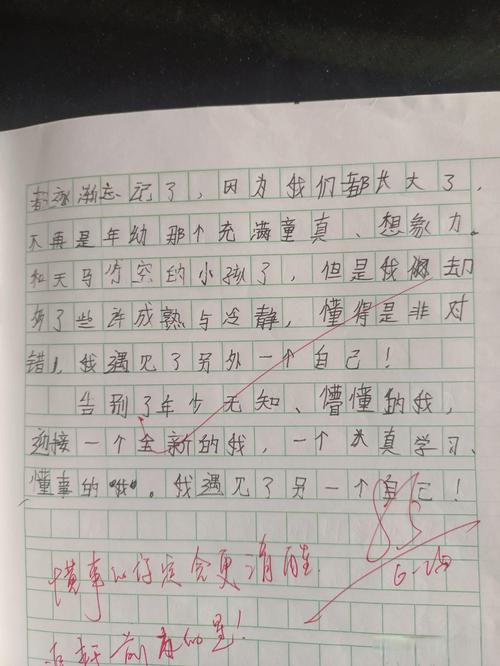 都逐渐忘记了，因为我们都长大了，
不再是年幼那个充满童真、想象力
和天马行空的小孩了，但是我却
多了些许成熟与冷静，懂得是非对
错，我遇见了另外一个自己！
告别了年少无知、懵懂的我，
迎接一个全新的我，一个认真学习、
懂事的"我"。我遇见了另一个自己！
85
懂事的你定会更清醒.